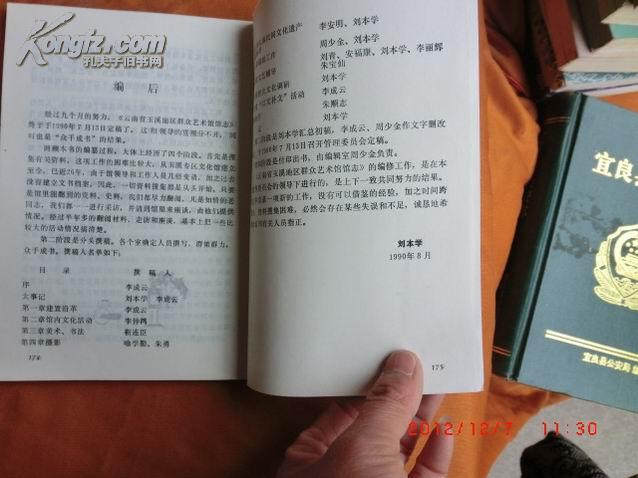 Kongfz.com
孔夫子旧书网
编 后
经过九个月的努力,《云南省玉溪地区群众艺术馆馆志》
终于于1990年7月15日定稿了。这和领导的重视分不开,同
时也是“众手成书”的结果。
回顾本书的编纂过程,大体上经历了四个阶段。首先是搜
集有关资料,这项工作的困难比较大,从玉溪专区文化馆建立
至今,已近26年,由于馆领导和工作人员几经变动,加之过去
没有建立文书档案,因此,一切资料搜集都是从头开始。只要
同志,我们都一一进行采访,并请到馆里来座谈,由他们提供
情况。经过半年多的翻阅材料,走访和座谈,基本上把一些比
较大的活动情况搞清楚。
第二阶段是分头撰稿。各个室确定人员撰写,群策群力,
众手成书。撰稿人名单如下:
目 录 撰 稿 人
序 李成云
大事记 刘本学 李成云
第一章建置沿革 李成云
第二章馆内文化活动 李钟鸿
第三章美术、书法 靳连臣
第四章摄影 喻学勤、朱勇
174
民间文化遗产 李安明、刘本学
工作 周少金、刘本学
刘青、安福康、刘本学、李丽辉
辅导 朱宝仙
文化调研 刘本学
“以文补文”活动 李成云
朱顺志
刘本学
阶段是刘本学汇总初稿,李成云、周少金作文字删改
7月15日召开管理委员会定稿。
阶段是付印出书,由编辑室周少金负责。
《云南省玉溪地区群众艺术馆馆志》的编修工作,是在本
会的领导下进行的,是上下一致共同努力的结果。
是一项新的工作,没有可以借鉴的经验,加之时间跨
资料搜集困难,必然会存在某些失误和不足,诚恳地希
有关人员指正。
刘本学
1990年8月
175
宜良县
宜良县公安局
2012/12/7 11:30